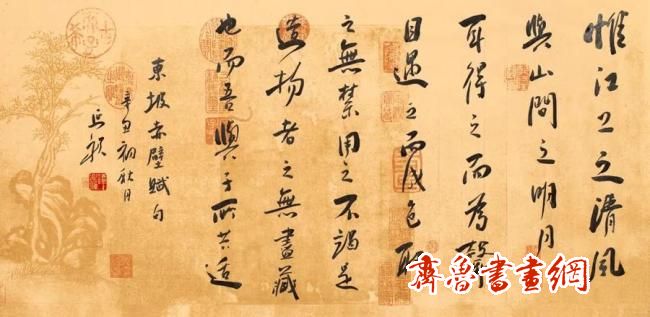 惟江上之清風
與山間之明月
耳得之而為聲
目遇之而成色取
之無禁用之不竭是
造物者之無盡藏
也而吾與子所共適
東坡赤壁賦句
辛丑初秋月
齊魯書畫網